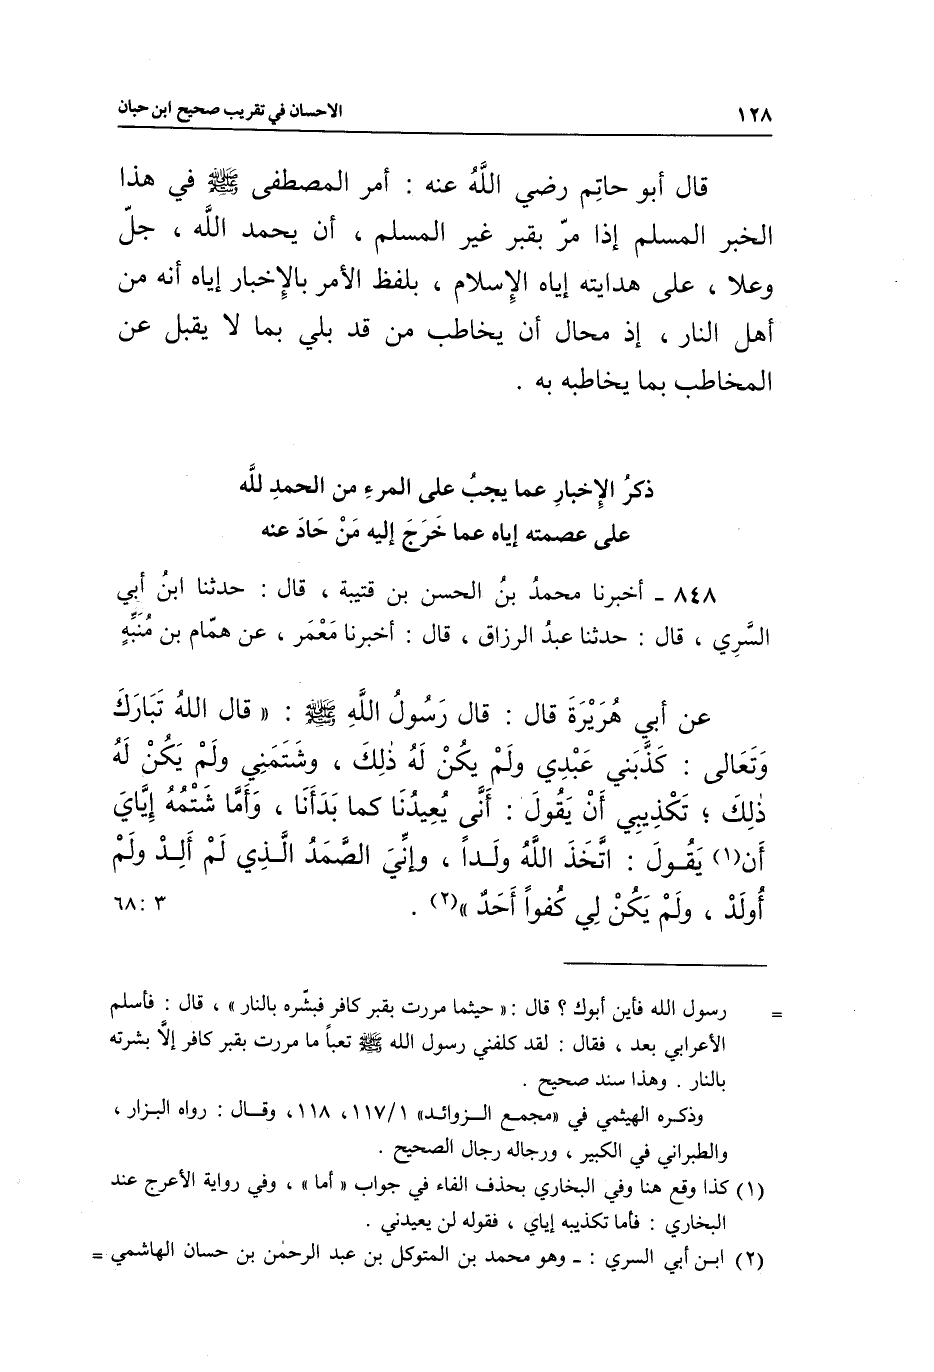 ١٢٨ الاحسان في تقريب صحيح ابن حبان
قال أبو حاتِم رضي اللَّهُ عنه : أمر المصطفى ﷺ في هذا
الخبر المسلم إذا مرّ بقبر غير المسلم ، أن يحمد اللَّه ، جلّ
وعلا ، على هدايته إياه الإِسلام ، بلفظ الأمر بالإِخبار إياه أنه من
أهل النار ، إذ محال أن يخاطب من قد بلي بما لا يقبل عن
المخاطب بما يخاطبه به .
ذكرُ الإِخبارِ عما يجبُ على المرءِ من الحمدِ للَّه
على عصمته إياه عما خَرَجَ إليه مَنْ حَادَ عنه
٨٤٨ ـ أخبرنا محمدُ بنُ الحسن بن قتيبة ، قال : حدثنا ابنُ أبي
السَّرِي ، قال : حدثنا عبدُ الرزاق ، قال : أخبرنا مَعْمَر ، عن همّام بن مُنَبِّهٍ
عن أبي هُرَيْرَةَ قال : قال رَسُولُ اللَّهِ ﷺ : « قال اللهُ تَبَارَكَ
وَتَعَالى : كَذَّبَني عَبْدِي ولَمْ يكُنْ لَهُ ذٰلِكَ ، وشَتَمَنِي ولَمْ يَكُنْ لَهُ
ذٰلِكَ ؛ تَكْذِيبِي أَنْ يَقُولَ : أَنَّى يُعِيدُنَا كما بَدَأَنَا ، وَأَمَّا شَتْمُهُ إِيَّايَ
أَن(١) يَقُـولَ : اتَّخَذَ اللَّهُ ولَـداً ، وإِنِّيَ الصَّمَدُ الَّـذِي لَمْ أَلِـدْ ولَمْ
أُولَدْ ، ولَمْ يَكُنْ لِي كُفواً أَحَدٌ »(٢) . ٣ :٦٨
= رسول الله فأين أبوك ؟ قال :« حيثما مررت بقبر كافر فبشّره بالنار » ، قال : فأسلم
الأعرابي بعد ، فقال : لقد كلفني رسول الله ﷺ تعباً ما مررت بقبر كافر إلَّا بشرته
بالنار . وهذا سند صحيح .
وذكـره الهيثمي في «مجمـع الـزوائـد» ١/١١٧، ١١٨، وقـال : رواه البـزار ،
والطبراني في الكبير ، ورجاله رجال الصحيح .
(١) كذا وقع هنا وفي البخاري بحذف الفاء في جواب « أما » ، وفي رواية الأعرج عند
البخاري : فأما تكذيبه إياي ، فقوله لن يعيدني .
(٢) ابـن أبي السري : ـ وهو محمد بن المتوكل بن عبد الرحمٰن بن حسان الهاشمي =